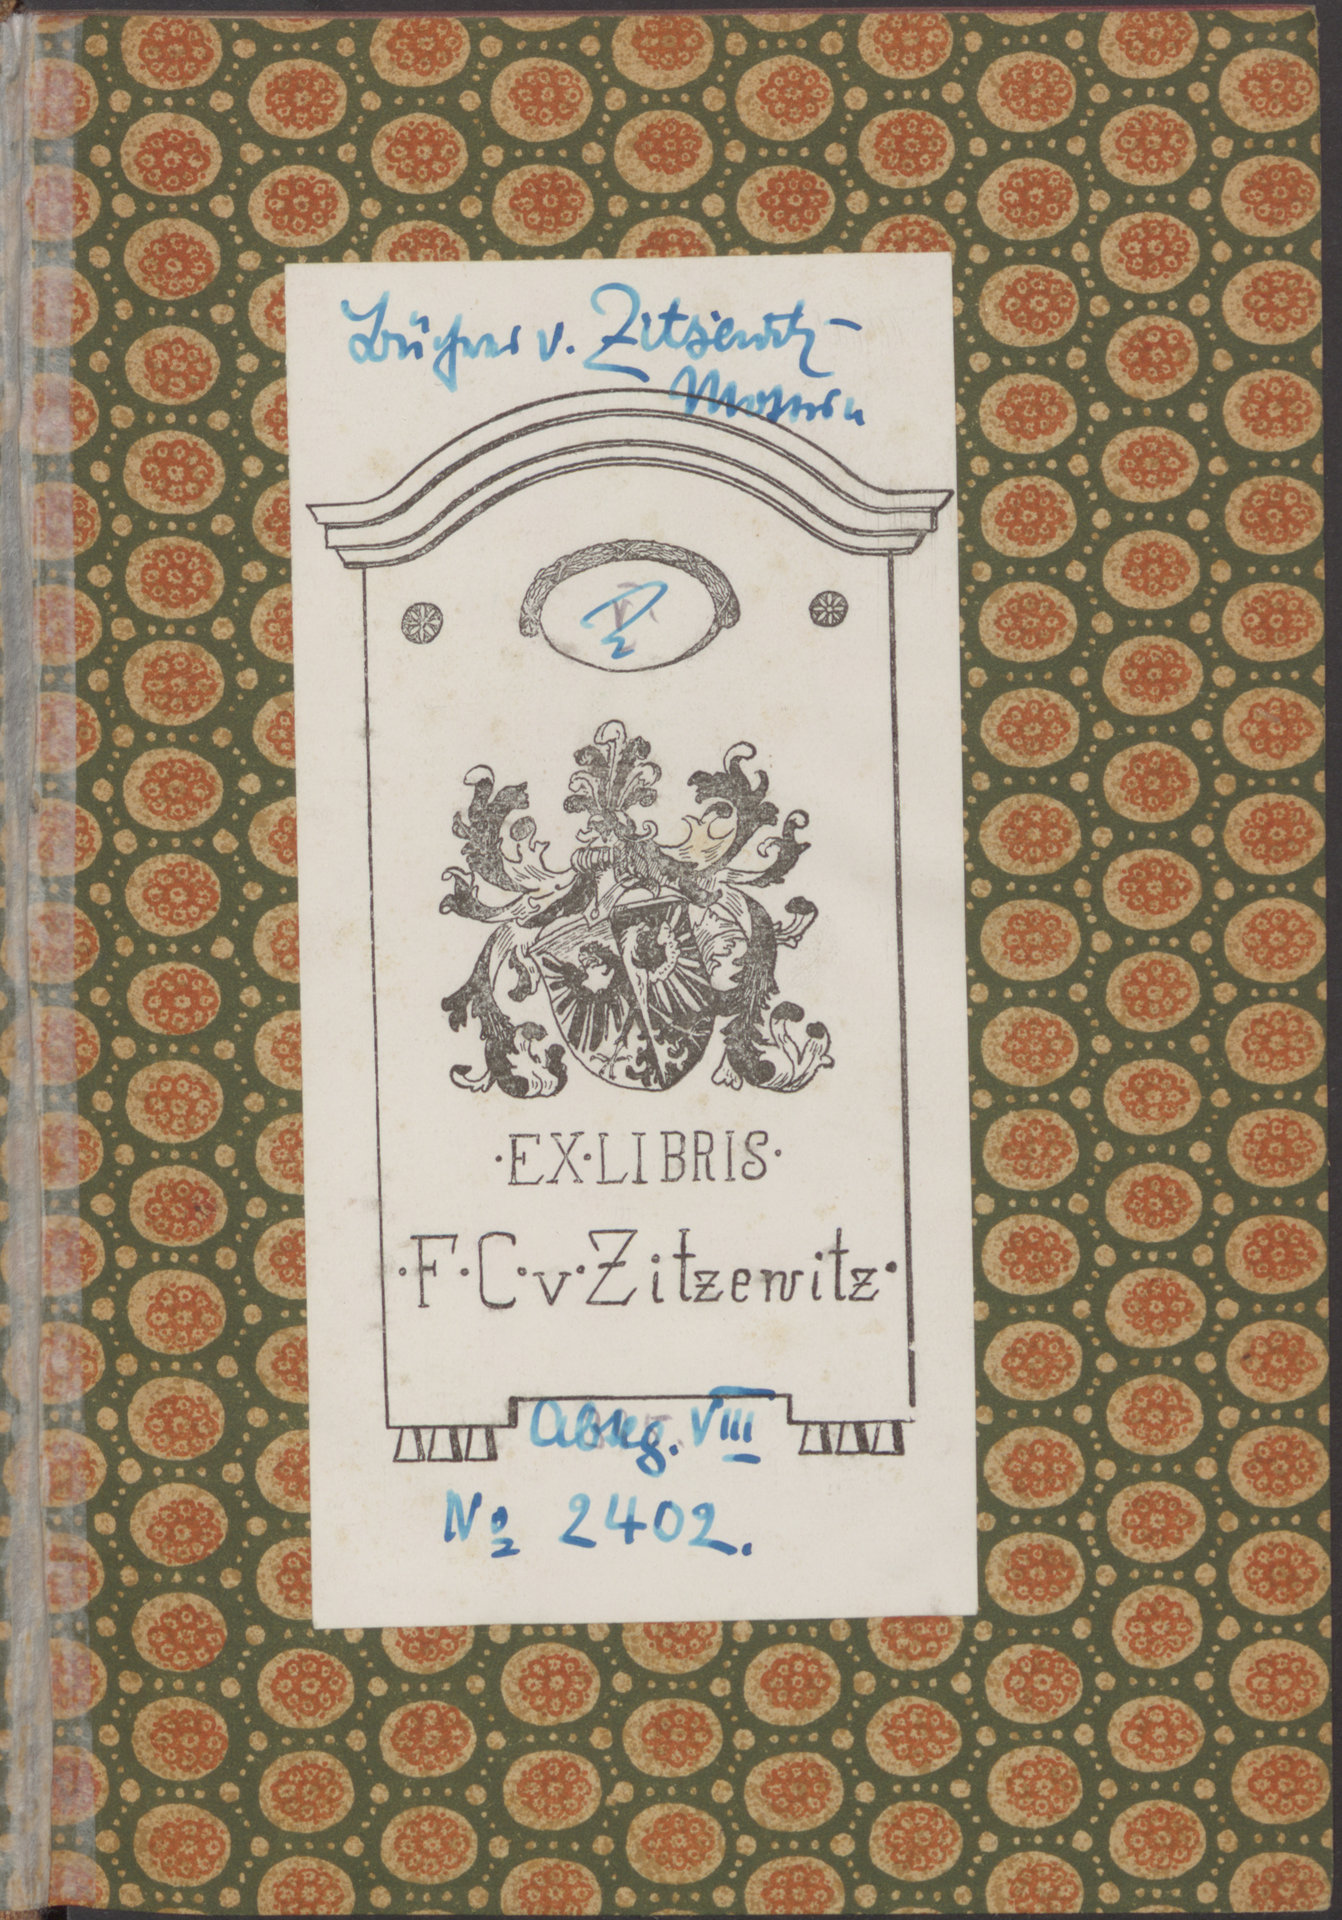 Bücher v. Zitzewitz-
·EX·LIBRIS·
·F·C·v·Zitzewitz·
Abteg. VIII
No 2402.